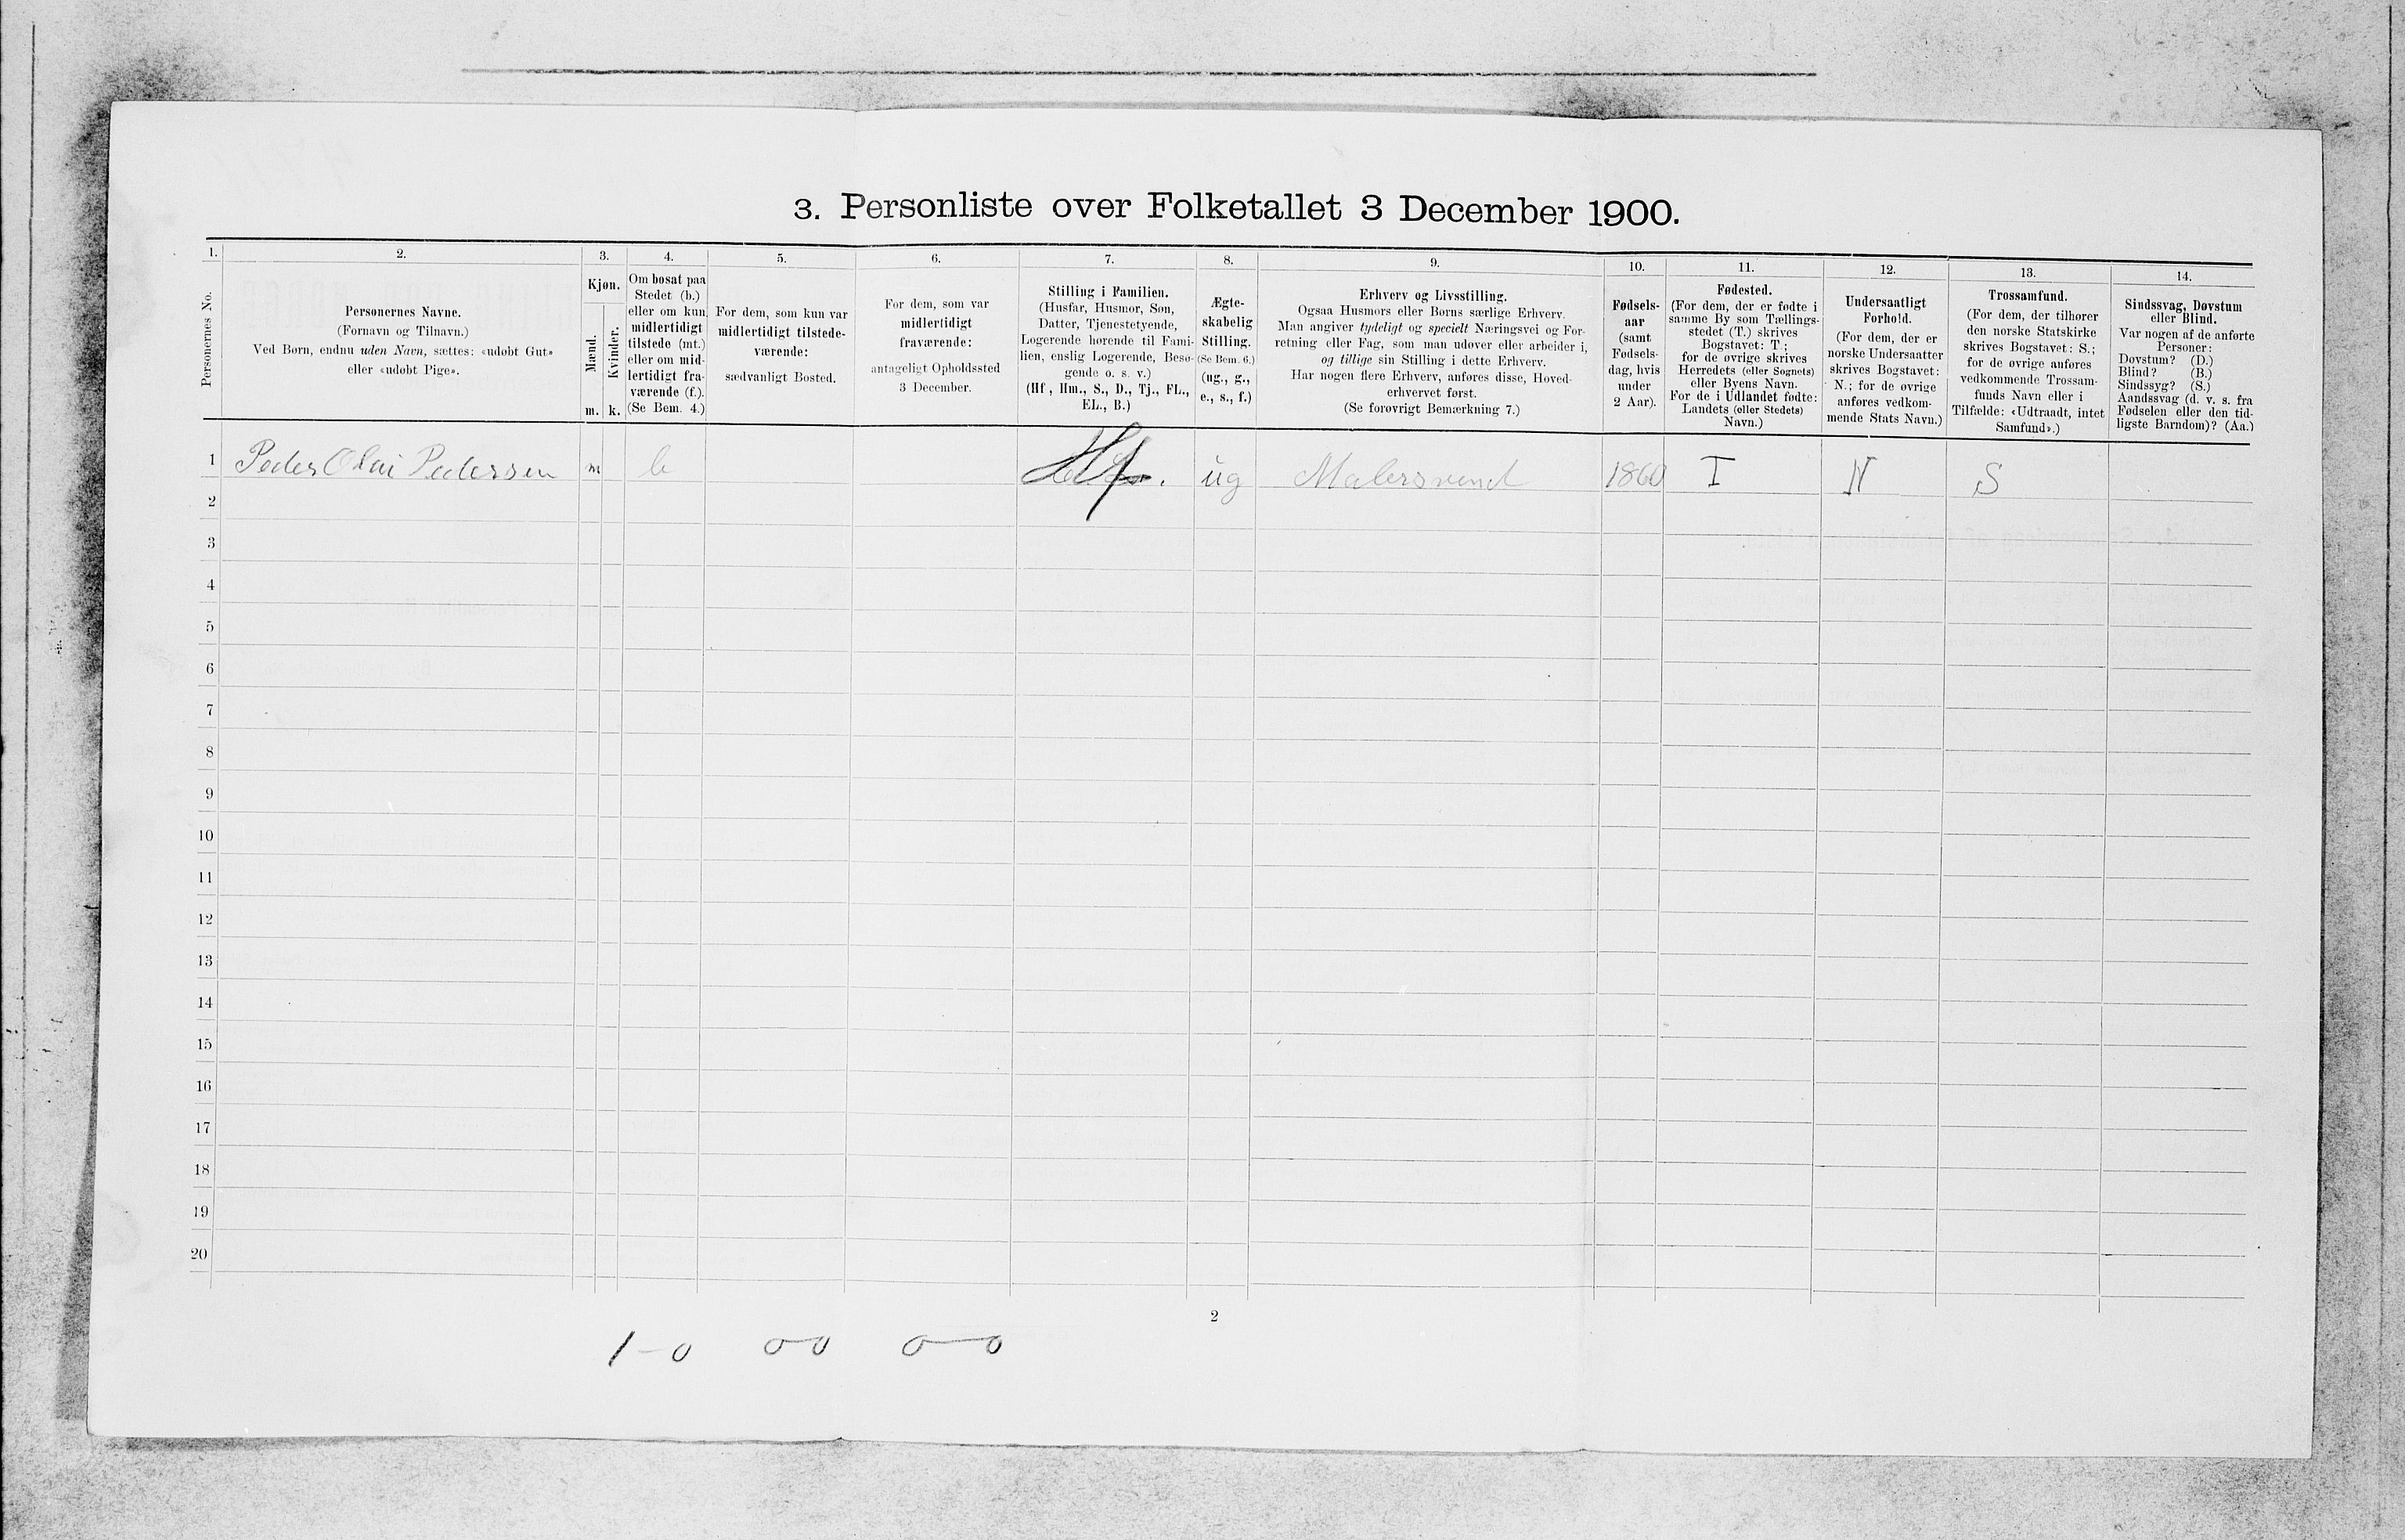 3. Personliste over Folketallet 3 December 1900.
1. 2. 3. 4. 5. 6. 7. 8. 9. 10. 11. 12. 13. 14.
Personernes No.
Personernes Navne.
(Fornavn og Tilnavn.)
Ved Børn, endnu uden Navn, sættes: «udøbt Gut»
eller «udøbt Pige».
Kjøn.
Mænd.
Kvinder.
m. k.
Om bosat paa
Stedet (b.)
eller om kun
midlertidigt
tilstede (mt.)
eller om mid-
lertidigt fra-
værende (f.).
(Se Bem. 4.)
For dem, som kun var
midlertidigt tilstede-
værende:
sædvanligt Bosted.
For dem, som var
midlertidigt
fraværende:
antageligt Opholdssted
3 December.
Stilling i Familien.
(Husfar, Husmor, Søn,
Datter, Tjenestetyende,
Logerende hørende til Fami-
lien, enslig Logerende, Besø-
gende o. s. v.)
(Hf., Hm., S., D., Tj., FL.,
EL., B.)
Ægte-
skabelig
Stilling.
(Se Bem. 6.)
(ug., g.,
e., s., f.)
Erhverv og Livsstilling.
Ogsaa Husmors eller Børns særlige Erhverv.
Man angiver tydeligt og specielt Næringsvei og For-
retning eller Fag, som man udøver eller arbeider i,
og tillige sin Stilling i dette Erhverv.
Har nogen flere Erhverv, anføres disse, Hoved-
erhvervet først.
(Se forøvrigt Bemærkning 7.)
Fødsels-
aar
(samt
Fødsels-
dag, hvis
under
2 Aar).
Fødested.
(For dem, der er fødte i
samme By som Tællings-
stedet (T.) skrives
Bogstavet: T ;
for de øvrige skrives
Herredets (eller Sognets)
eller Byens Navn.
For de i Udlandet fødte:
Landets (eller Stedets)
Navn.)
Undersaatligt
Forhold.
(For dem, der er
norske Undersaatter
skrives Bogstavet:
N.; for de øvrige
anføres vedkom-
mende Stats Navn.)
Trossamfund.
(For dem, der tilhører
den norske Statskirke
skrives Bogstavet: S.;
for de øvrige anføres
vedkommende Trossam-
funds Navn eller i
Tilfælde: «Udtraadt, intet
Samfund».)
Sindssvag, Døvstum
eller Blind.
Var nogen af de anførte
Personer:
Døvstum? (D.)
Blind? (B.)
Sindssyg? (S.)
Aandssvag (d. v. s. fra
Fødselen eller den tid-
ligste Barndom)? (Aa.)
1 Peder Olai Pedersen m b Hf. ug Malersvend 1860 T N S
2
3
4
5
6
7
8
9
10
11
12
13
14
15
16
17
18
19
20
2
1-0 0-0 0-0